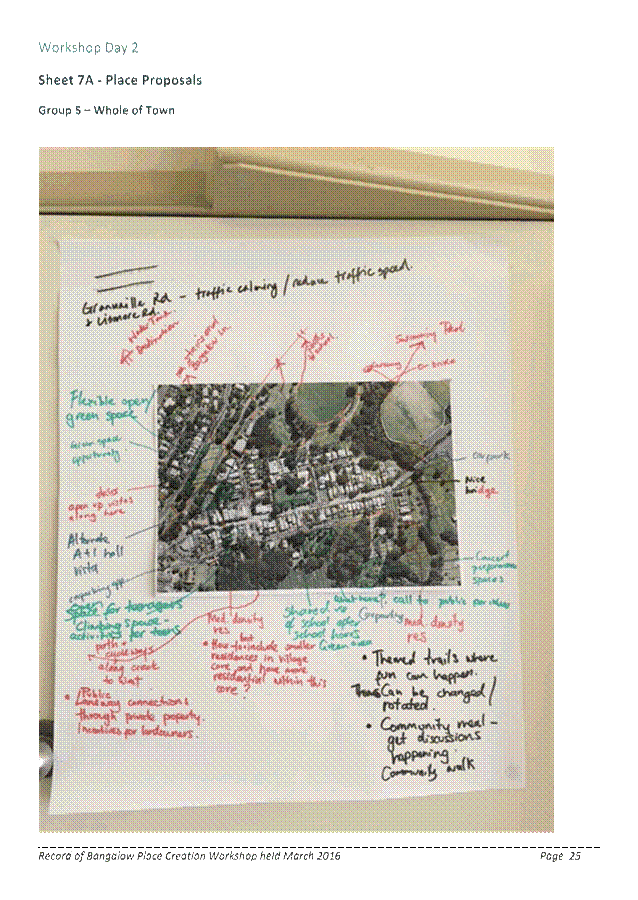 Workshop Day 2
Sheet 7A - Place Proposals
Group 5 – Whole of Town
Granville Rd - traffic calming / reduce traffic speed.
& Lismore Rd.
Water Tower
Destination
Swimming Pool
Flexible open/
green space
Green space
opportunity
open up vistas
along here
Alternate
A+I hall
vista
Carpark
Nice
bridge
Concert
performance
spaces
Space for teenagers
Climbing space -
activities for teens
path +
cycleways
along creek
to
Public
Laneway connections
through private property.
Incentives for landowners.
Med density
res
• How to include smaller
residences in village
core, and have more
residential within this
core?
Shared use
of school after
school hours
Green area
call to public for ideas
Carparking
med density
res
• Themed trails where
fun can happen.
Can be changed/
rotated.
• Community meal -
get discussions
happening.
Community walk
Record of Bangalow Place Creation Workshop held March 2016
Page 25